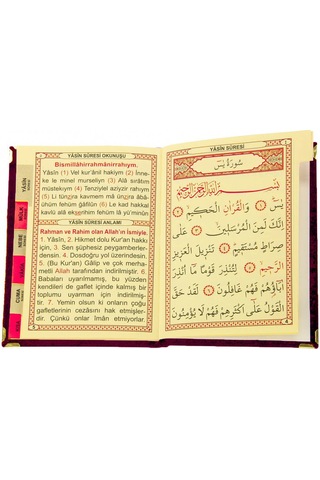 YÂSÎN SÛRESİ OKUNUŞU
Bismillâhirrahmânirrahıym.
Yâsîn (1) Vel kur'ânil hakiym (2) İnne-
ke le minel murseliyn (3) Alâ sırâtım
müstekıym (4) Tenziylel azizir rahıym
(5) Li tünzira kavmen mâ ünzira âbâ-
ühüm fehüm gâfilûn (6) Le kad hakkal
kavlü alâ ekserihim fehüm lâ yü'minûn
YÂSÎN SÛRESİ ANLAMI
Rahman ve Rahim olan Allah'ın İsmiyle.
1. Yâsîn, 2. Hikmet dolu Kur'an hakkı
için, 3. Sen şüphesiz peygamberler-
densin. 4. Dosdoğru yol üzerindesin.
5. (Bu Kur'an) Gâlip ve çok merha-
metli Allah tarafından indirilmiştir. 6.
Babaları uyarılmamış, bu yüzden
kendileri de gaflet içinde kalmış bir
toplumu uyarman için indirilmiştir.
7. Yemin olsun ki onların çoğu
gafletlerinin cezasını hak etmişler-
dir. Çünkü onlar îmân etmiyorlar.
YÂSÎN
MÜLK
NEBE
CUMA
YÂSÎN SÛRESİ
سُورَةُ يٰسٓ
بِسْمِ اللهِ الرَّحْمٰنِ الرَّحِيمِ
يٰسٓ ﴿١﴾ وَالْقُرْاٰنِ الْحَكِيمِ ﴿٢﴾
اِنَّكَ لَمِنَ الْمُرْسَلِينَ ﴿٣﴾ عَلٰى
صِرَاطٍ مُسْتَقِيمٍ ﴿٤﴾ تَنْزِيلَ الْعَزِيزِ
الرَّحِيمِ ﴿٥﴾ لِتُنْذِرَ قَوْمًا مَٓا اُنْذِرَ
اٰبَٓاؤُهُمْ فَهُمْ غَافِلُونَ ﴿٦﴾ لَقَدْ حَقَّ
الْقَوْلُ عَلٰٓى اَكْثَرِهِمْ فَهُمْ لَا يُؤْمِنُونَ